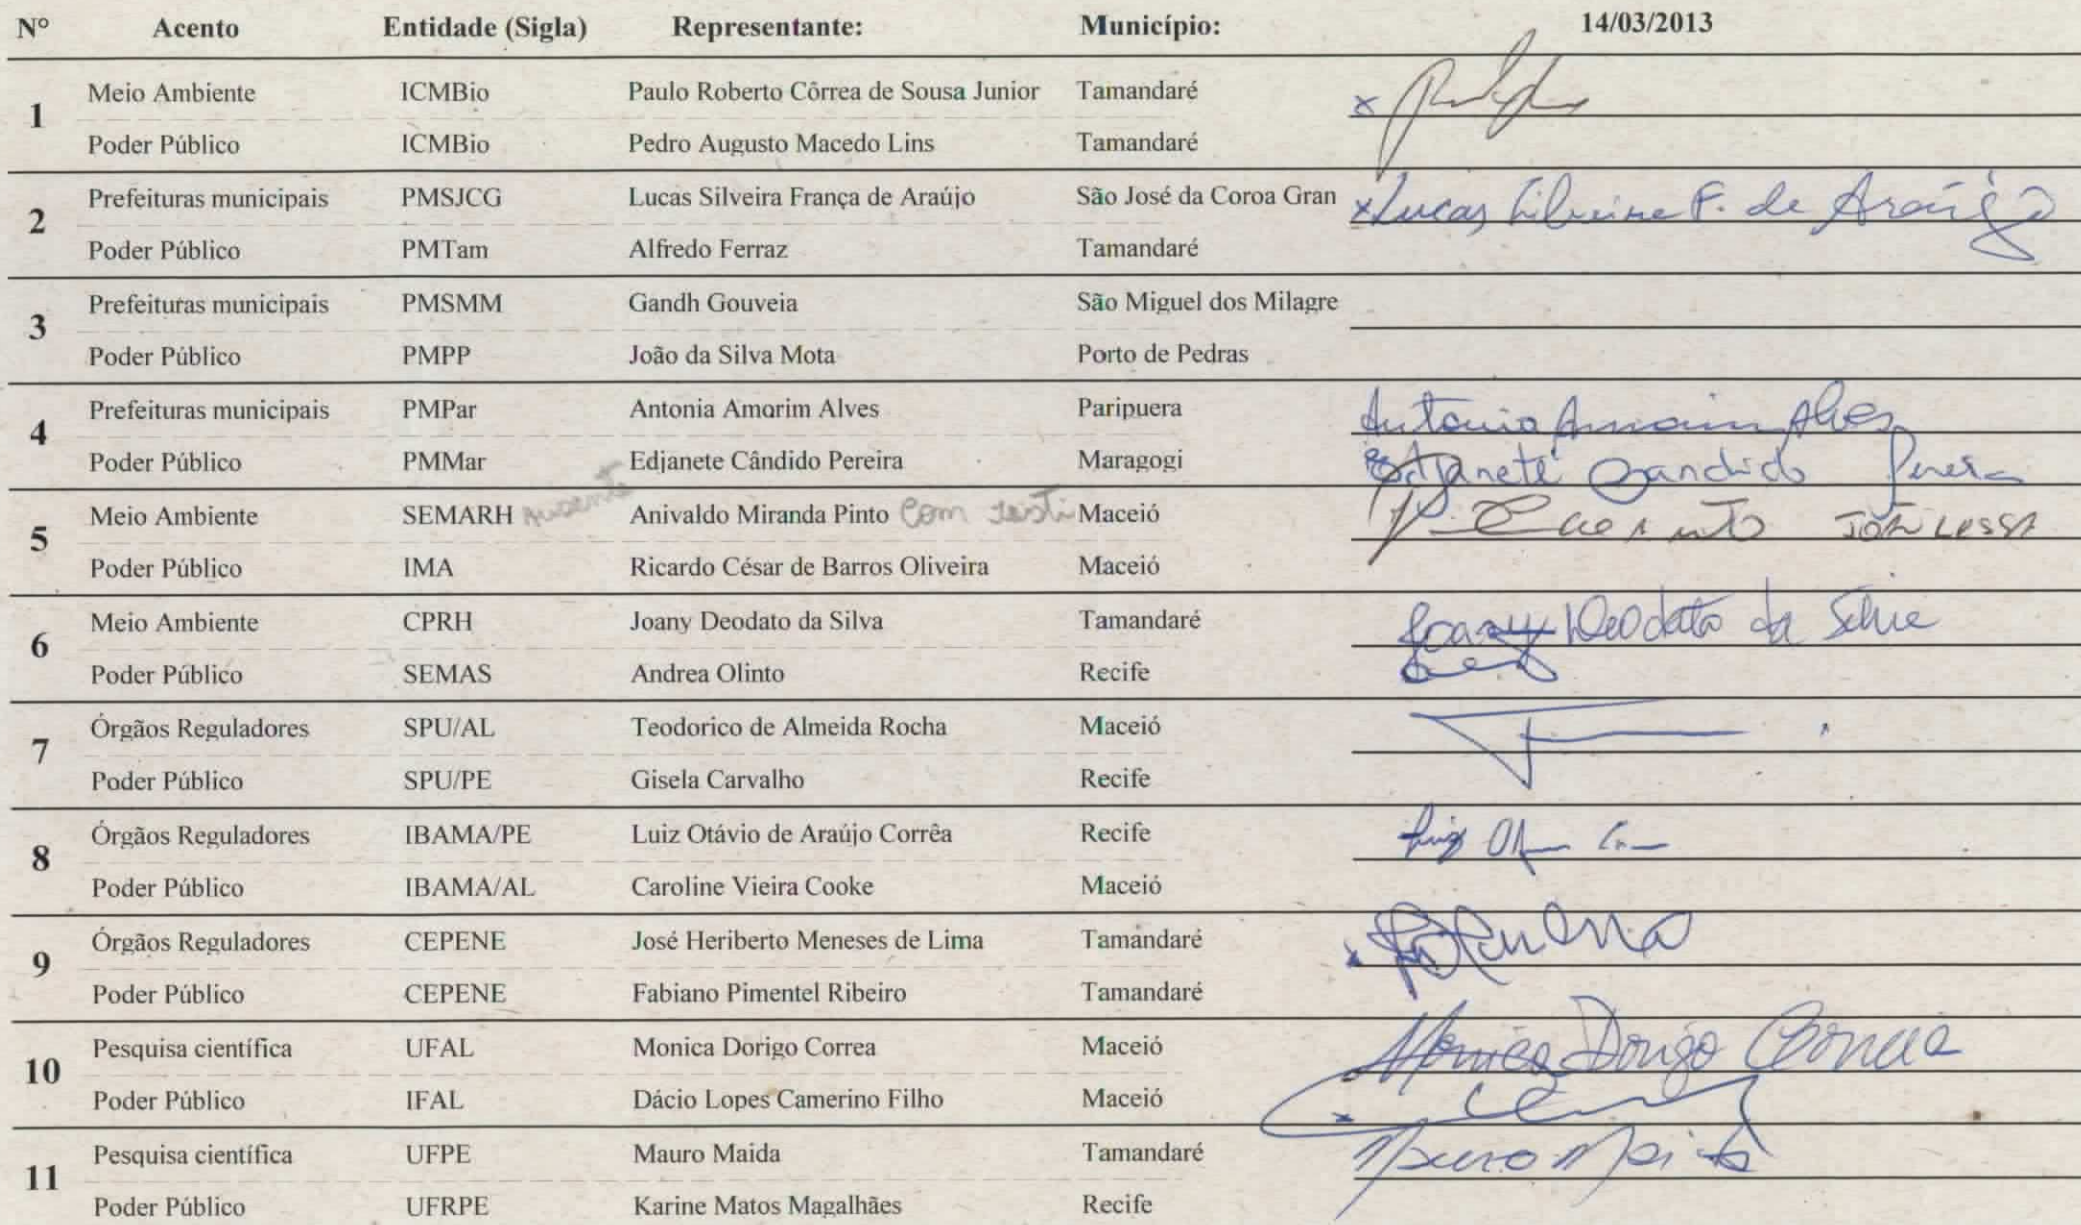 Nº Acento Entidade (Sigla) Representante: Município: 14/03/2013
1
Meio Ambiente ICMBio Paulo Roberto Côrrea de Sousa Junior Tamandaré x
Poder Público ICMBio Pedro Augusto Macedo Lins Tamandaré
2
Prefeituras municipais PMSJCG Lucas Silveira França de Araújo São José da Coroa Gran x Lucas Silveira F. de Araújo
Poder Público PMTam Alfredo Ferraz Tamandaré
3
Prefeituras municipais PMSMM Gandh Gouveia São Miguel dos Milagre
Poder Público PMPP João da Silva Mota Porto de Pedras
4
Prefeituras municipais PMPar Antonia Amorim Alves Paripuera Antonia Amorim Alves
Poder Público PMMar Edjanete Cândido Pereira Maragogi Edjanete Candido Pereira
5
Meio Ambiente SEMARH Ausente Anivaldo Miranda Pinto Com Maceió
Poder Público IMA Ricardo César de Barros Oliveira Maceió
6
Meio Ambiente CPRH Joany Deodato da Silva Tamandaré Joany Deodato da Silva
Poder Público SEMAS Andrea Olinto Recife
7
Órgãos Reguladores SPU/AL Teodorico de Almeida Rocha Maceió
Poder Público SPU/PE Gisela Carvalho Recife
8
Órgãos Reguladores IBAMA/PE Luiz Otávio de Araújo Corrêa Recife
Poder Público IBAMA/AL Caroline Vieira Cooke Maceió
9
Órgãos Reguladores CEPENE José Heriberto Meneses de Lima Tamandaré x
Poder Público CEPENE Fabiano Pimentel Ribeiro Tamandaré
10
Pesquisa científica UFAL Monica Dorigo Correa Maceió Monica Dorigo Correia
Poder Público IFAL Dácio Lopes Camerino Filho Maceió x
11
Pesquisa científica UFPE Mauro Maida Tamandaré Mauro Maida
Poder Público UFRPE Karine Matos Magalhães Recife